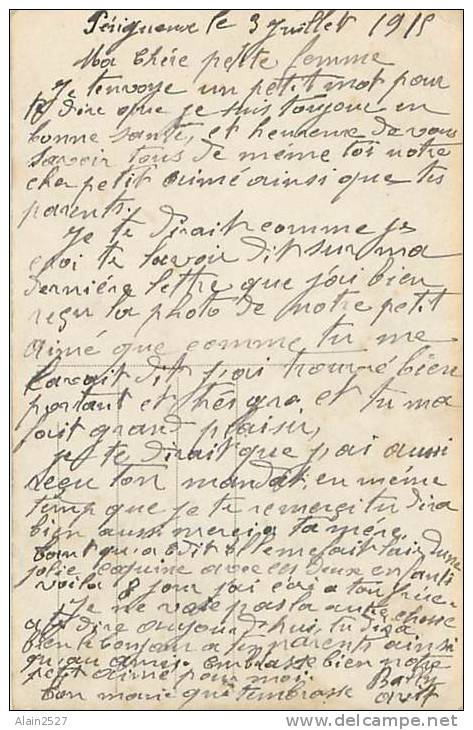 Périgueux le 3 Juillet 1915
Ma chère petite femme
Je tenvoye un petit mot pour
te dire que je suis toujour en
bonne santé, et heureux de vous
savoir tous de même toi notre
cher petit aimé ainsi que tes
parents.
Je te dirait comme je
croi te lavoir dit sur ma
dernière lettre que j'ai bien
reçu la photo de notre petit
aimé que comme tu me
lavait dit j'ai trouvé bien
portant et très gra et tu ma
fait grand plaisir,
je te dirait que j'ai aussi
reçu ton mandat, en même
temp que je te remerci tu dira
bien aussi merci a ta mére
voila 8 jour j'ai écri a ton
Je ne voie pas la autre chosse
a te dire aujourd'hui, tu dira
bien le bonjour a tes parents ainsi
qu'au amis. embrasse bien notre
petit aimé pour moi.
ton marie qui tembrasse
Alain2527